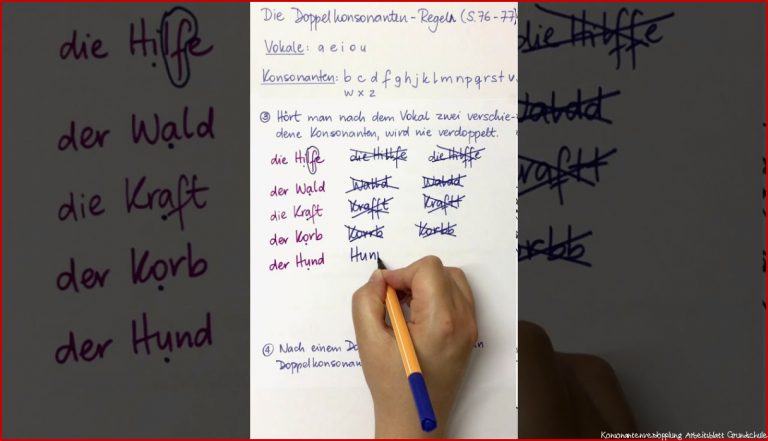 Die Doppelkonsonanten-Regeln (S. 76-77)
Vokale: a e i o u
Konsonanten: b c d f g h j k l m n p q r s t v
w x z
③ Hört man nach dem Vokal zwei verschie-
dene Konsonanten, wird nie verdoppelt.
die Hilfe die Hillfe die Hilffe
der Wald Walld Waldd
die Kraft Krafft Kraftt
der Korb Korrb Korbb
der Hund Hun
④ Nach einem
Doppelkonsonan
die Hilfe
der Wald
die Kraft
der Korb
der Hund
Konsonantenverdopplung Arbeitsblatt Grundschule